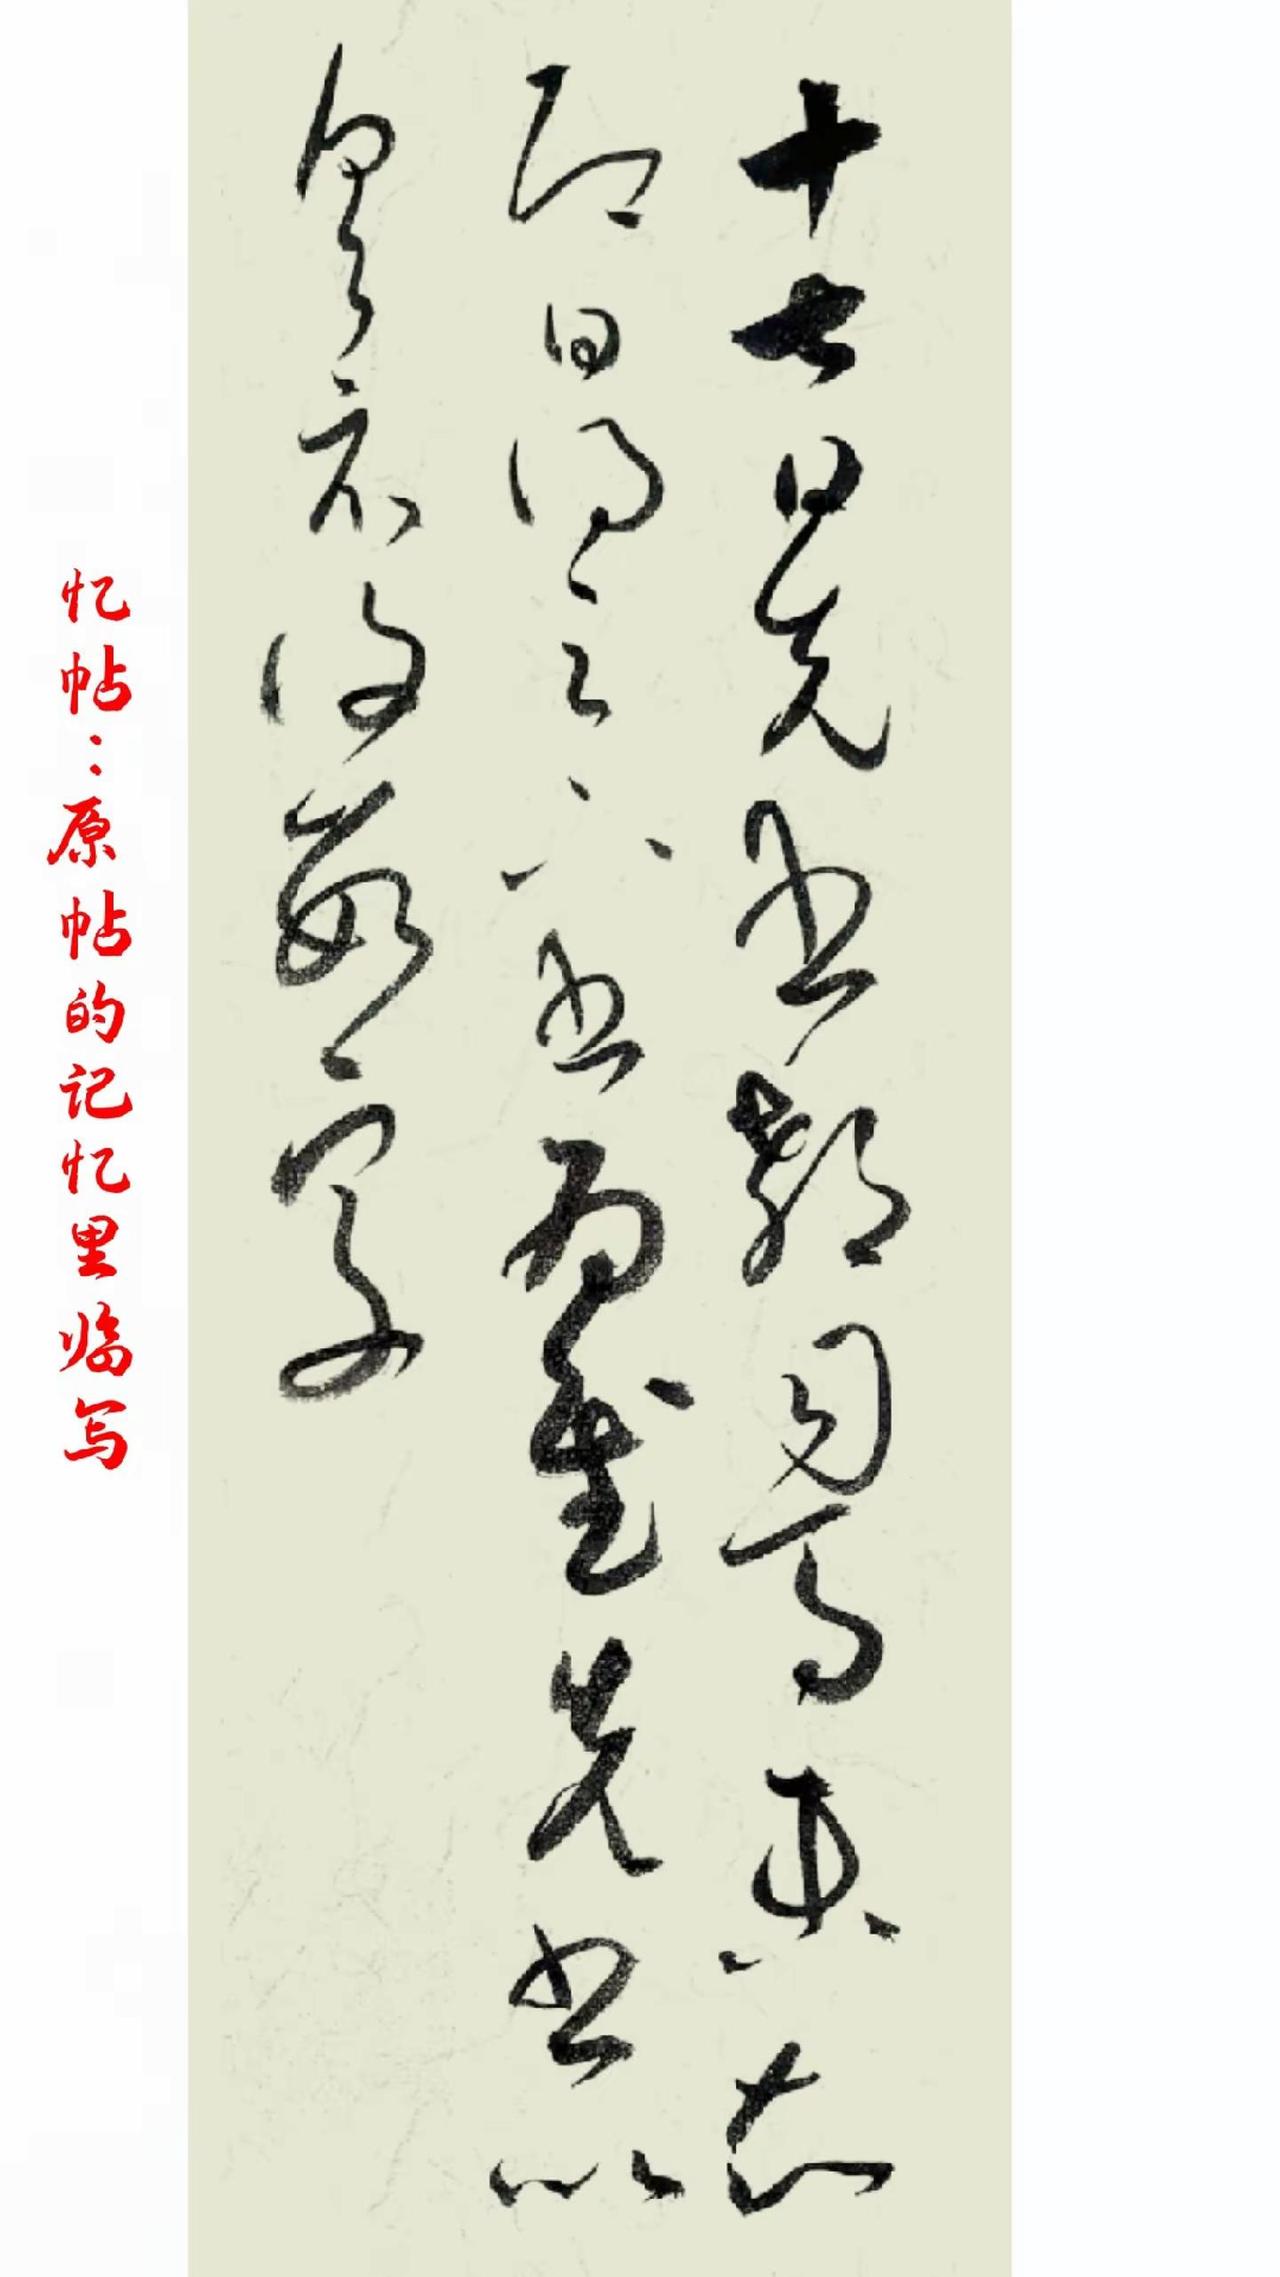 十七日先書郗司馬未去
即日得足下書為慰先書以
具示復數字
忆帖：原帖的记忆里临写